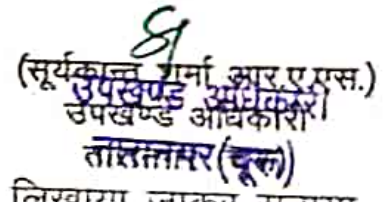 (सूर्यकान्त शर्मा आर.ए.एस.)
उपखण्ड अधिकारी
उपखण्ड अधिकारी
(चूरू)
लिखाया जाकर